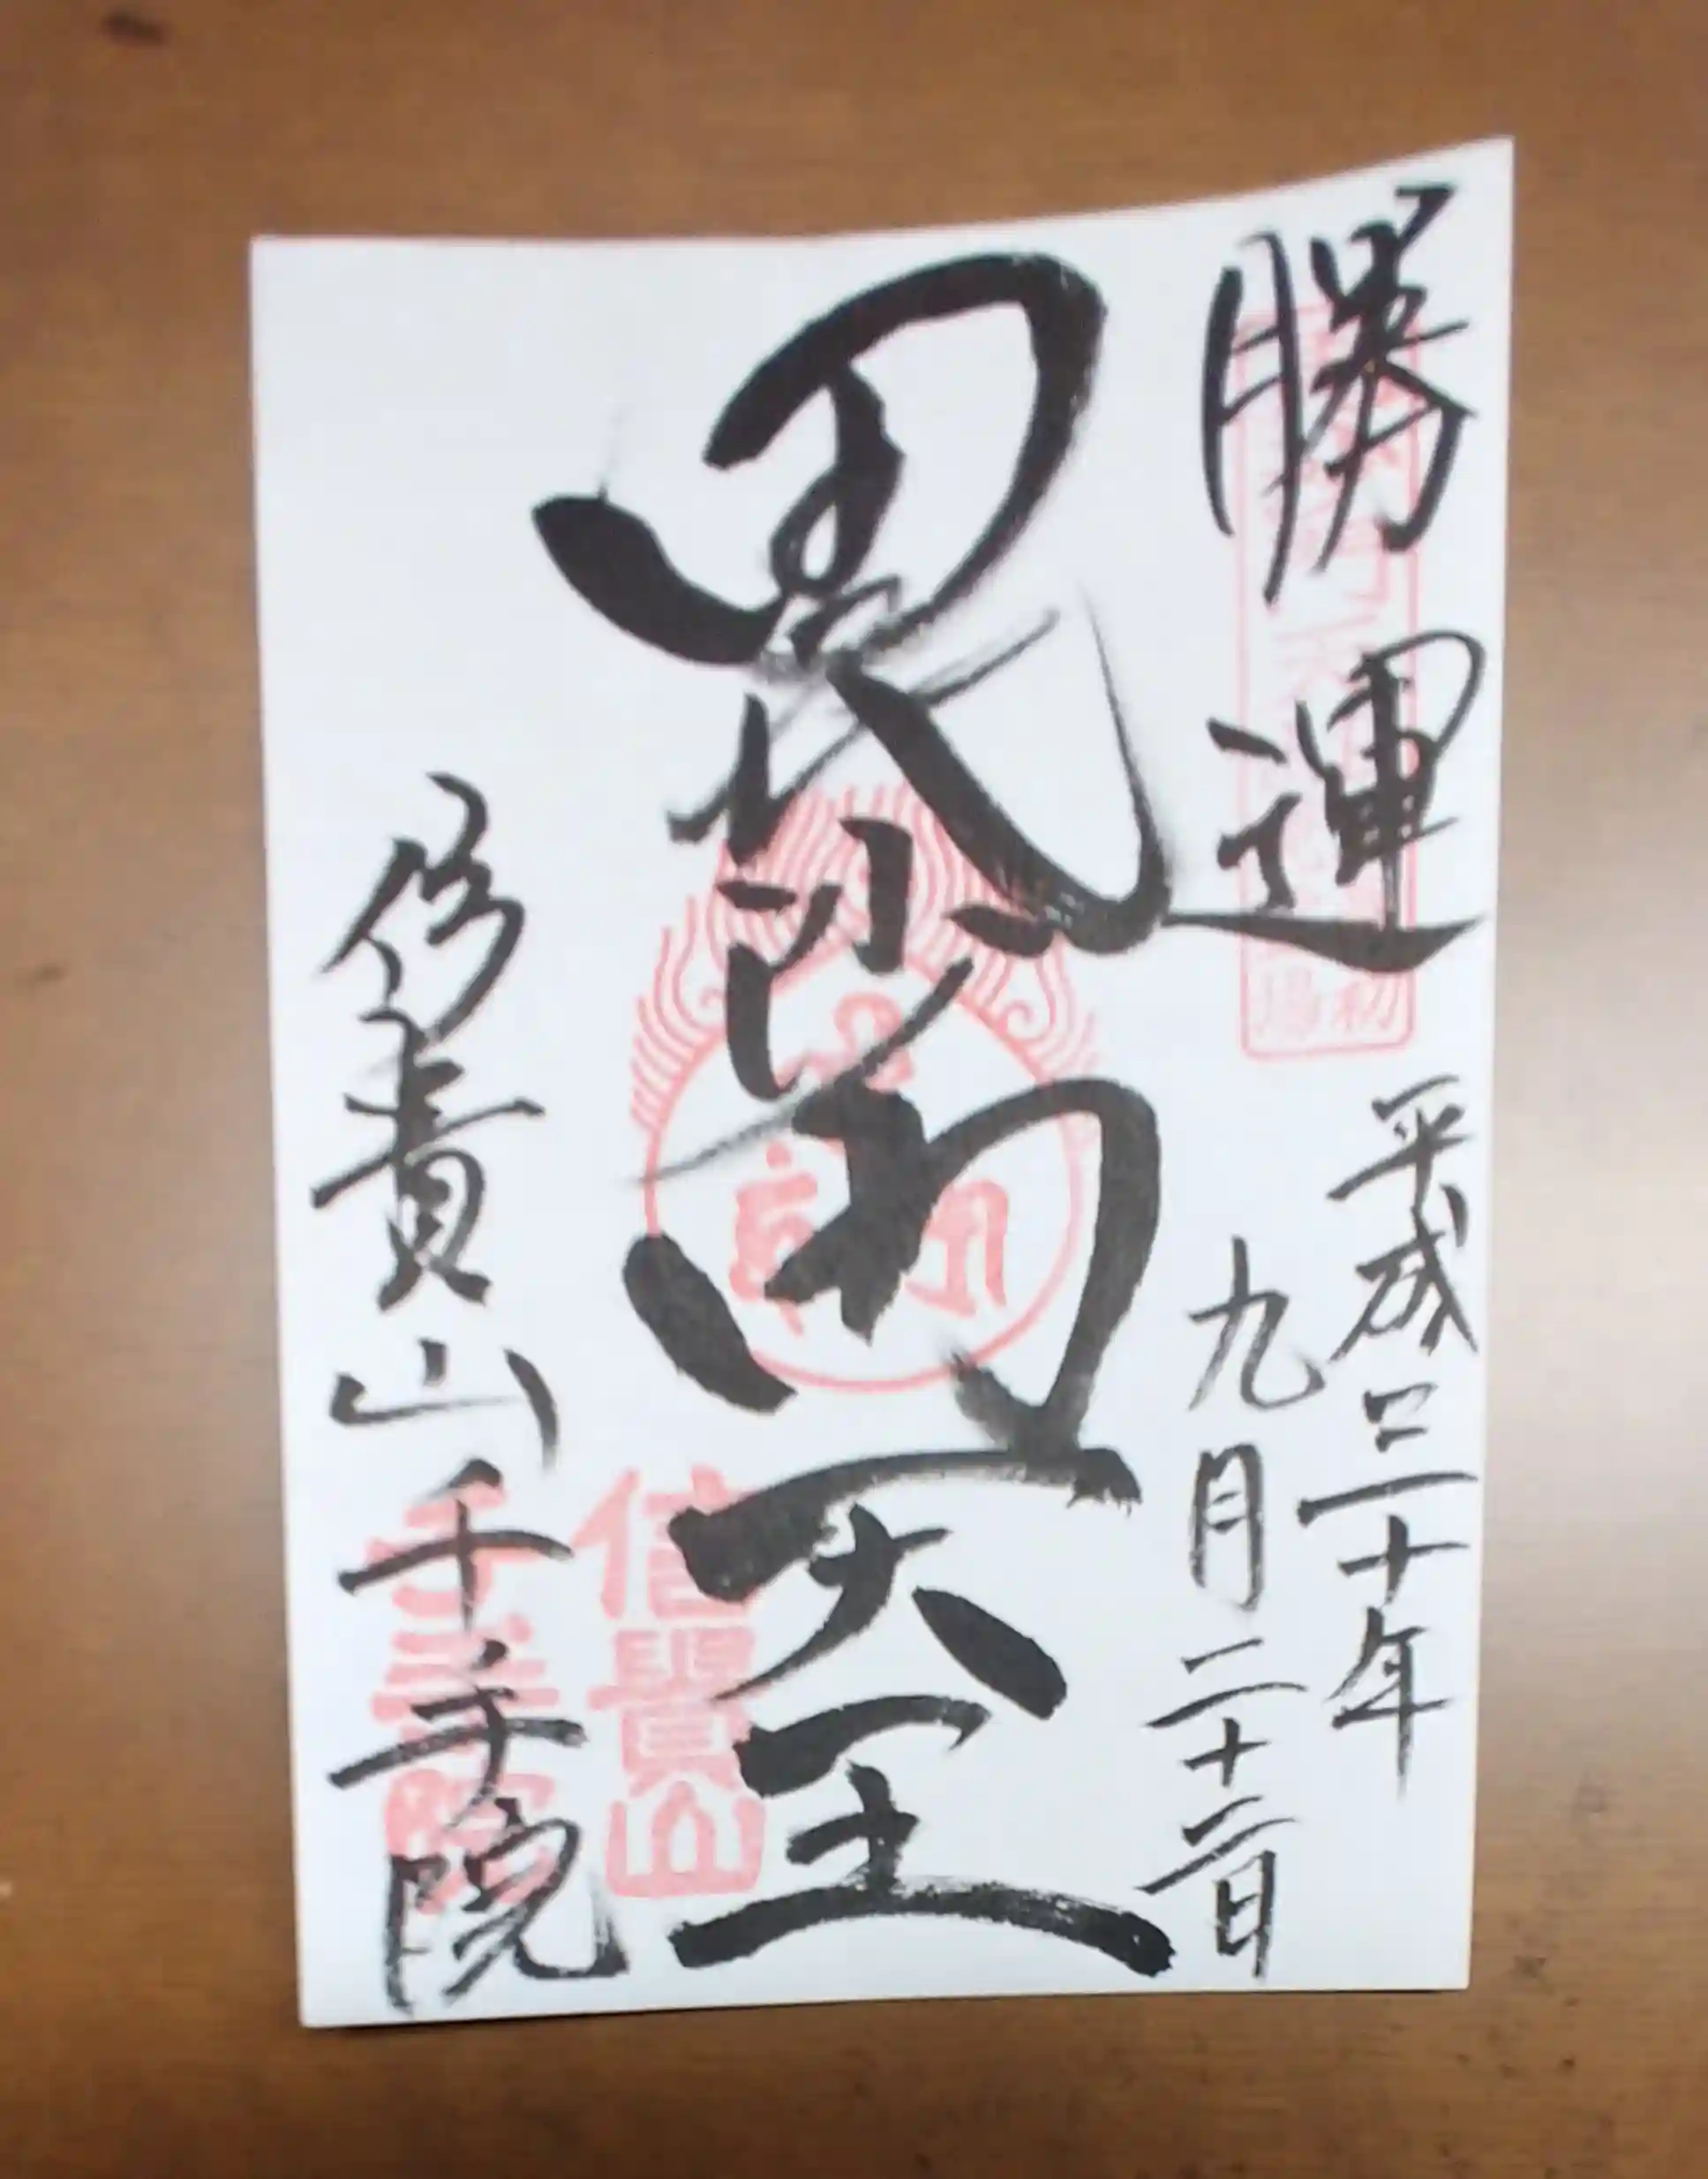 勝運
平成三十年
九月二十三日
毘沙門天王
信貴山千手院
信貴山
千手院